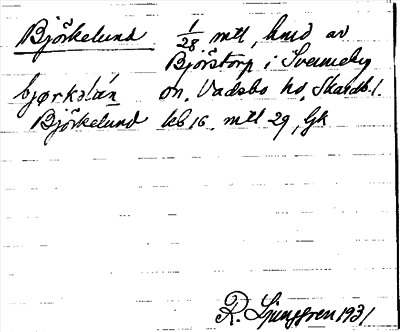 Björkelund 1/28 mtl, hmd av
Björstorp i Sveneby
bjørkəlún sn, Vadsbo hd, Skarab. l.
Björkelund kb 16, mtl 29, Gk
R. Ljunggren 1931